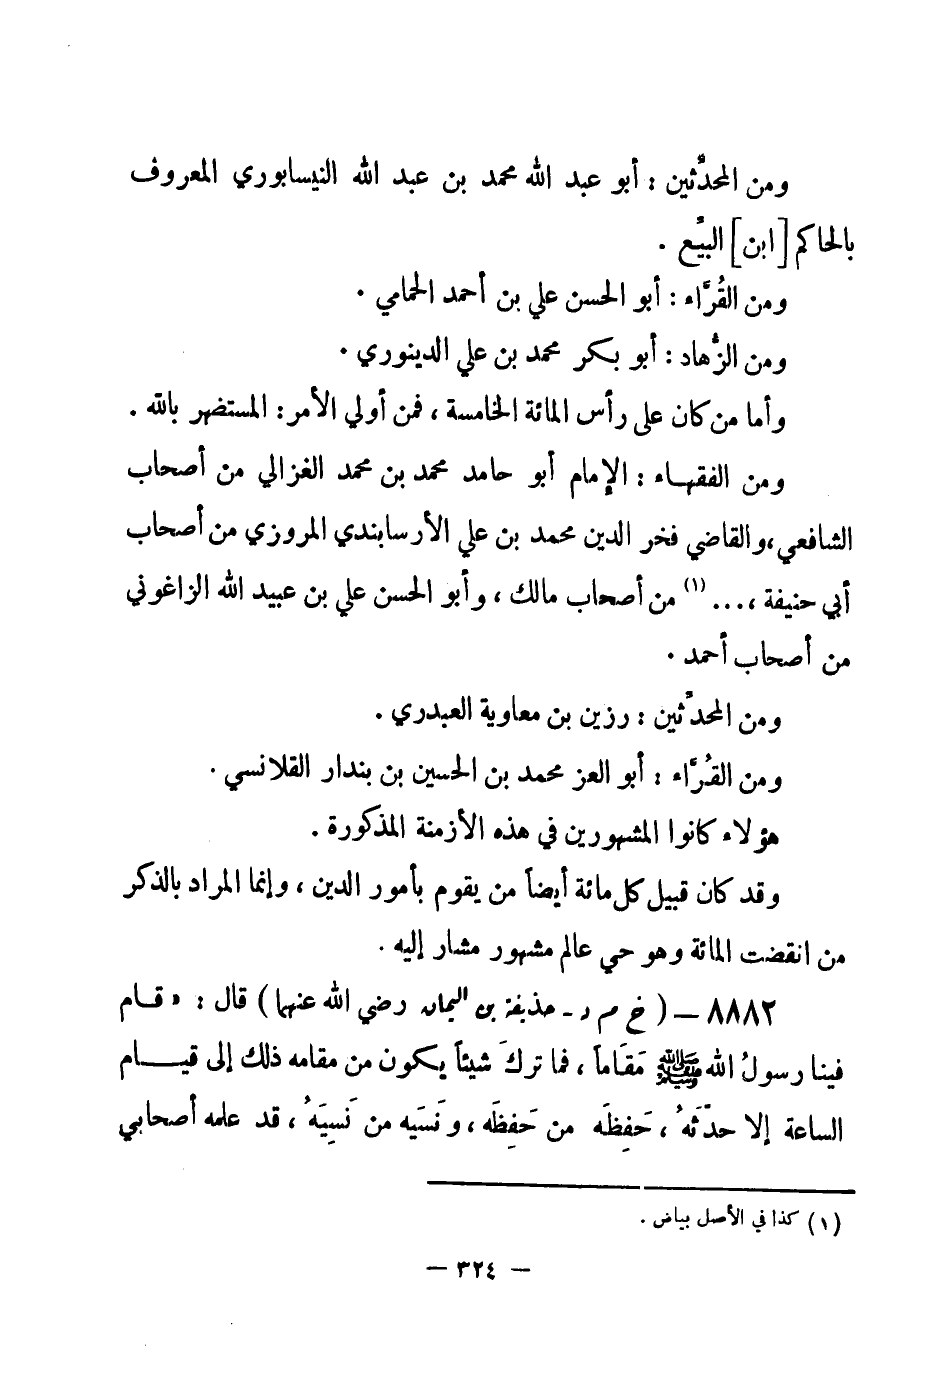 ومن المحدّثين : أبو عبد الله محمد بن عبد الله النيسابوري المعروف
بالحاكم [ ابن ] البيّع .
ومن القُرَّاء : أبو الحسن علي بن أحمد الحمامي .
ومن الزُّهاد : أبو بكر محمد بن علي الدينوري .
وأما من كان على رأس المائة الخامسة ، فمن أولي الأمر : المستضهر بالله .
ومن الفقهاء : الإمام أبو حامد محمد بن محمد الغزالي من أصحاب
الشافعي ، والقاضي فخر الدين محمد بن علي الأرسابندي المروزي من أصحاب
أبي حنيفة ، ... (١) من أصحاب مالك ، وأبو الحسن علي بن عبيد الله الزاغوني
من أصحاب أحمد .
ومن المحدّثين : رزين بن معاوية العبدري .
ومن القُرَّاء : أبو العز محمد بن الحسين بن بندار القلانسي .
هؤلاء كانوا المشهورين في هذه الأزمنة المذكورة .
وقد كان قبيل كل مائة أيضاً من يقوم بأمور الدين ، وإنما المراد بالذكر
من انقضت المائة وهو حي عالم مشهور مشار إليه .
٨٨٨٢ – ( خ م د - حذيفة بن اليمان رضي الله عنهما ) قال : « قام
فينا رسولُ الله ﷺ مَقَاماً ، فما تركَ شيئاً يكون من مقامه ذلك إلى قيام
الساعة إلا حدّثَهُ ، حَفِظَه من حَفِظَه ، ونَسَيه من نَسِيَهُ ، قد علمه أصحابي
(١) كذا في الأصل بياض .
– ٣٢٤ –